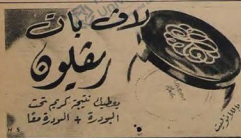 لاف بات
ريفلون
يعطيك نتيجة كريم تحت
البودرة + البودرة معًا